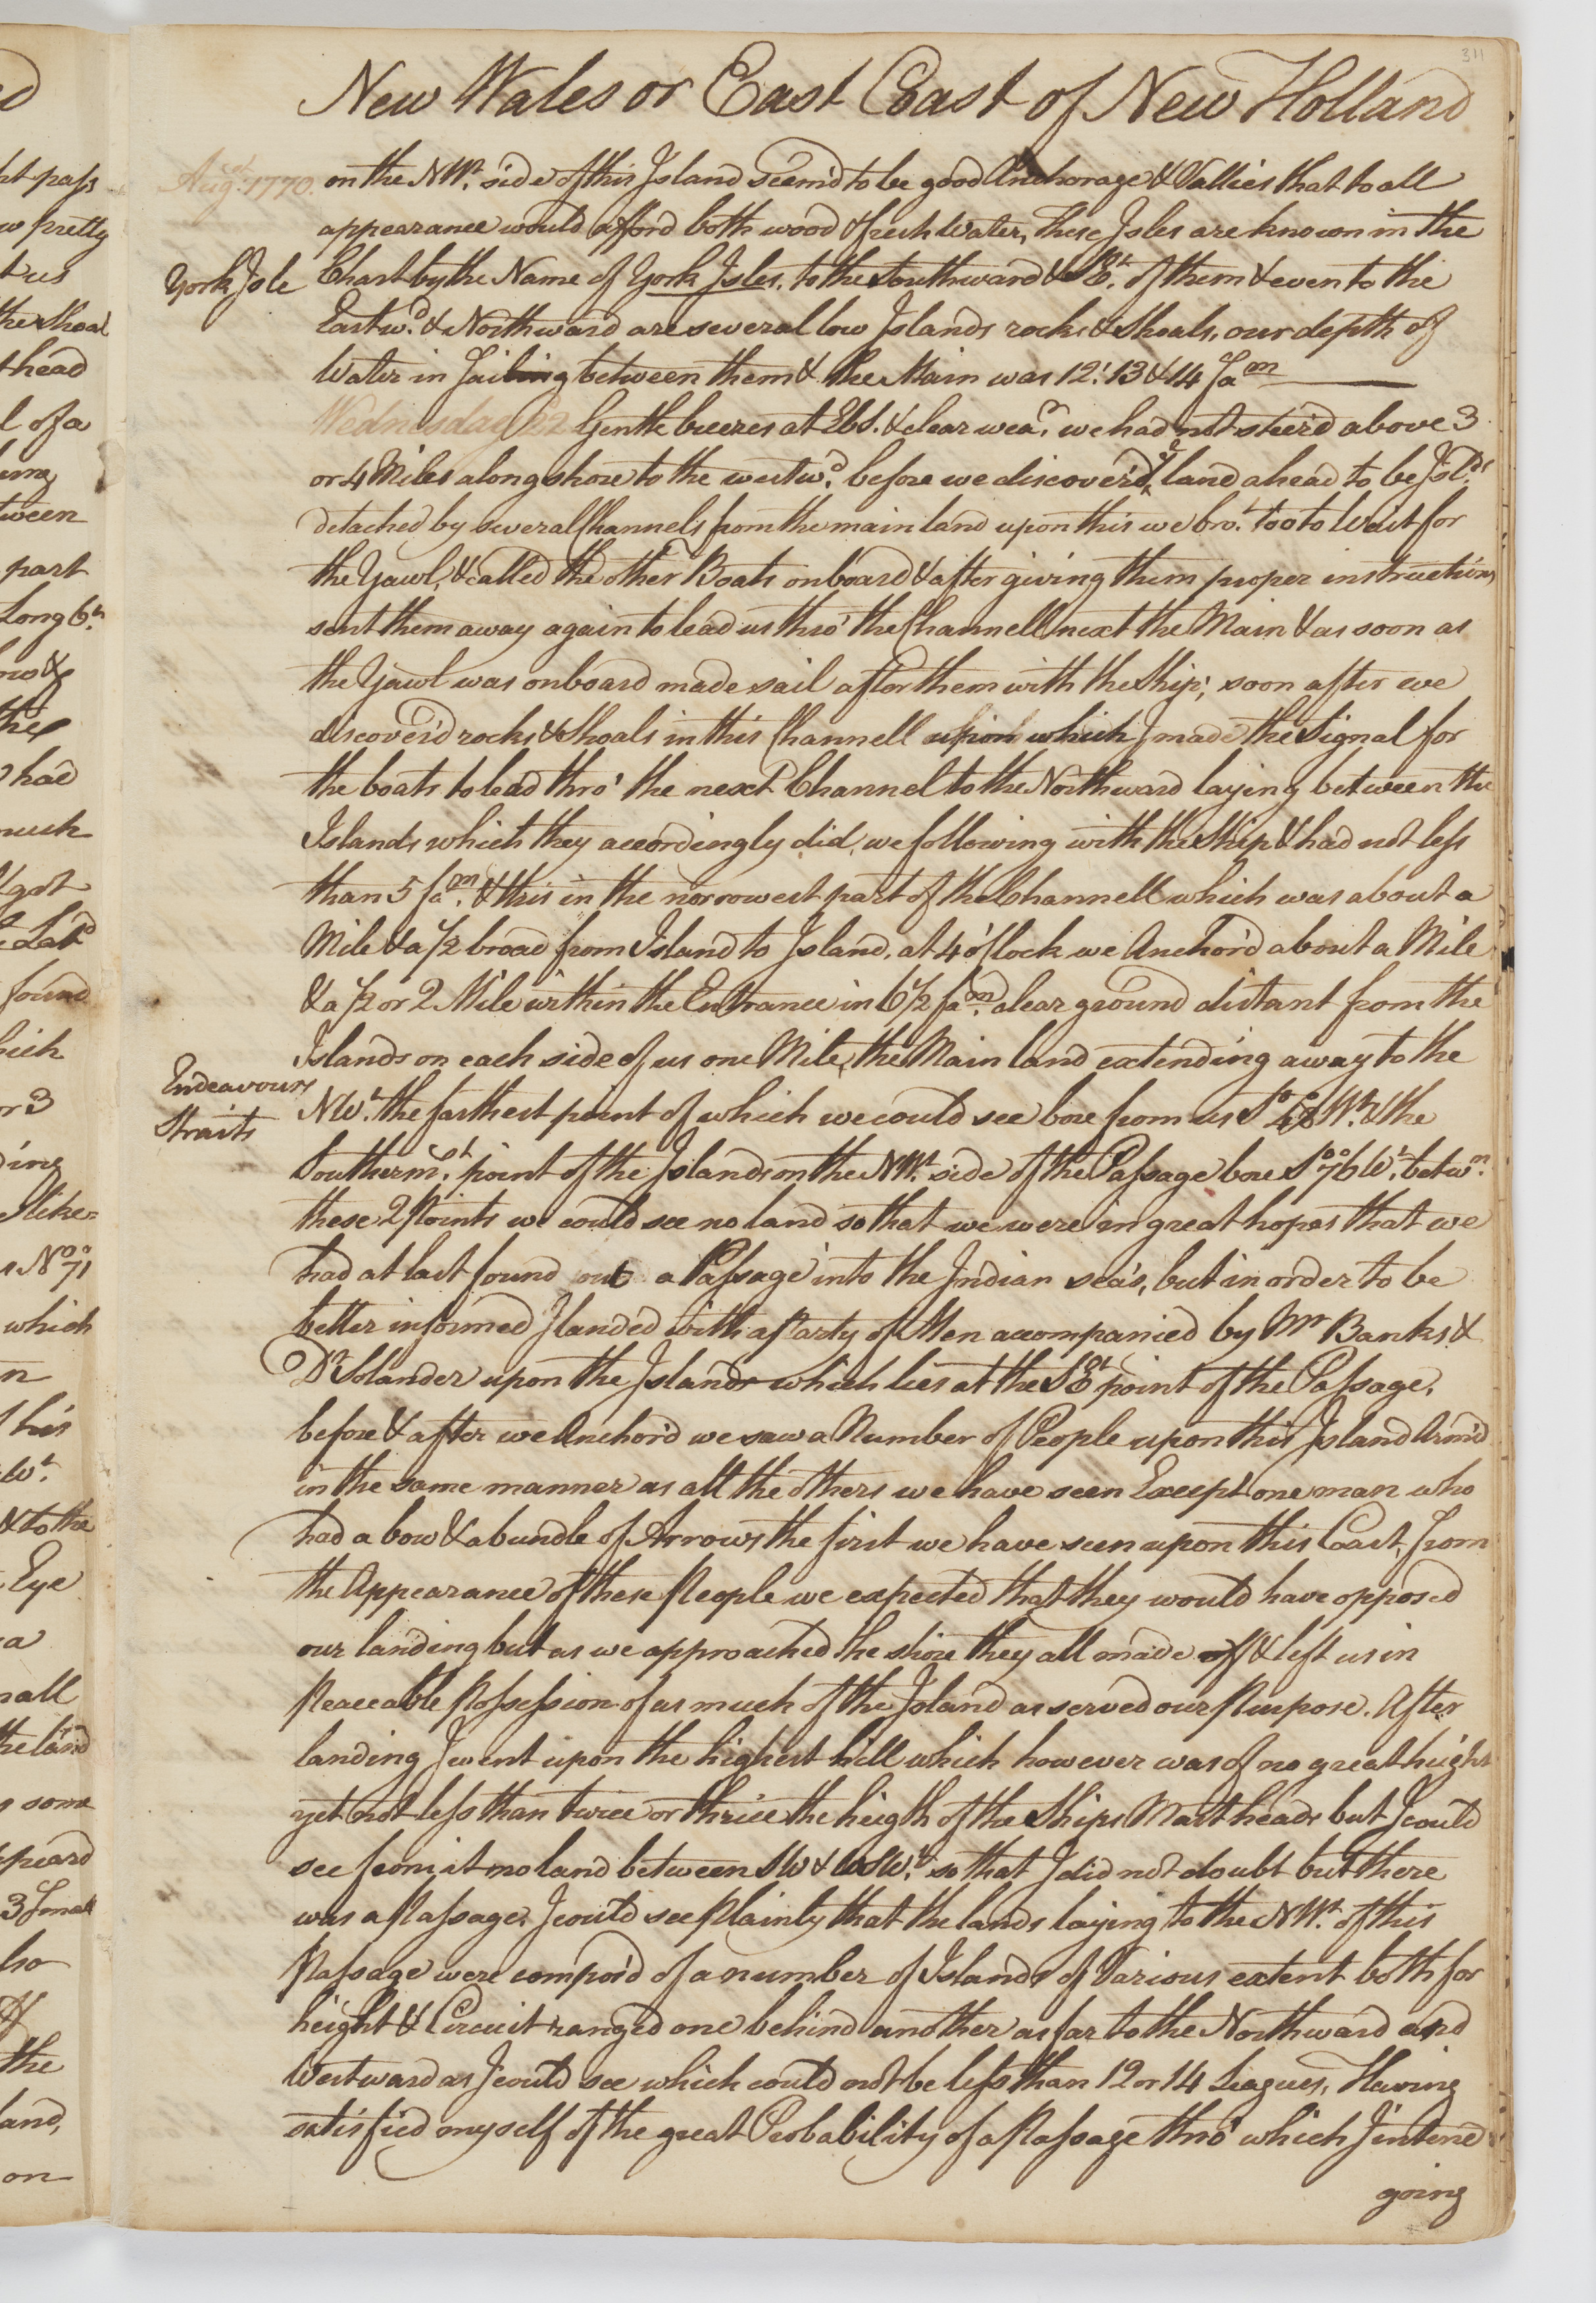 311
New Wales or East Coast of New Holland
Augst. 1770 on the NWt. side of this Island seem'd to be good Anchorage & Vallies that to all
appearance would afford both wood & fresh Water, these Isles are known in the
York Isle Chart by the Name of York Isles, to the Southward & SEt. of them & even to the
Eastwd. & Northward are several low Islands rocks & Shoals, our depth of
Water in Sailing between them & the Main was 12, 13 & 14 fam
Wednesday 22 Gentle breezes at EbS. & clear wear. we had not steer'd above 3
or 4 Miles along shore to the westwd. before we discover'd ye land ahead to be Islds.
detached by several Channels from the main land upon this we brot. too to Wait for
the Yawl, & called the other Boats onboard & after giving them proper instructions
sent them away again to lead us thro' the Channell next the Main & as soon as
the Yawl was onboard made sail after them with the Ship; soon after we
discover'd rocks & Shoals in this Channell upon which I made the Signal for
the boats to lead thro' the next Channel to the Northward laying between the
Islands which they accordingly did, we following with the Ship & had not less
than 5 fam. & this in the norrowest part of the Channell which was about a
Mile & a 1/2 broad from Island to Island, at 4 o'Clock we Anchor'd about a Mile
& a 1/2 or 2 Mile within the Entrance in 6 1/2 fam. clear ground distant from the
Islands on each side of us one Mile, the Main land extending away to the
Endeavours
Straits
NWt. the farthest point of which we could see bore from us So. 48° Wt. & the
Southermst. point of the Islands on the NWt. side of the Passage bore So. 76° Wt. betwn.
these 2 Points we could see no land so that we were in great hopes that we
had at last found out a Passage into the Indian sea's, but in order to be
better informed I landed with a Party of Men accompanied by Mr Banks &
Dr Solander upon the Islands which lies at the SEt point of the Passage,
before & after we Anchor'd we saw a Number of People upon this Island Arm'd
in the same manner as all the others we have seen Except one man who
had a bow & a bundle of Arrows the first we have seen upon this Coast, from
the Appearance of these People we expected that they would have opposed
our landing but as we approached the shore they all made off & left us in
Peaceable Possession of as much of the Island as served our Purpose. After
landing I went upon the highest hill which however was of no great height
yet not less than twice or thrice the heigth of the Ships Mast heads but I could
see from it no land between SW & WSWt. so that I did not doubt but there
was a Passage, I could see Plainly that the lands laying to the NWt. of this
Passage were compos'd of a number of Islands of Various extent both for
height & Circuit ranged one behind another as far to the Northward and
Westward as I could see which could not be less than 12 or 14 Leagues, Having
satisfied myself of the great Probability of a Passage thro' which I intend
going